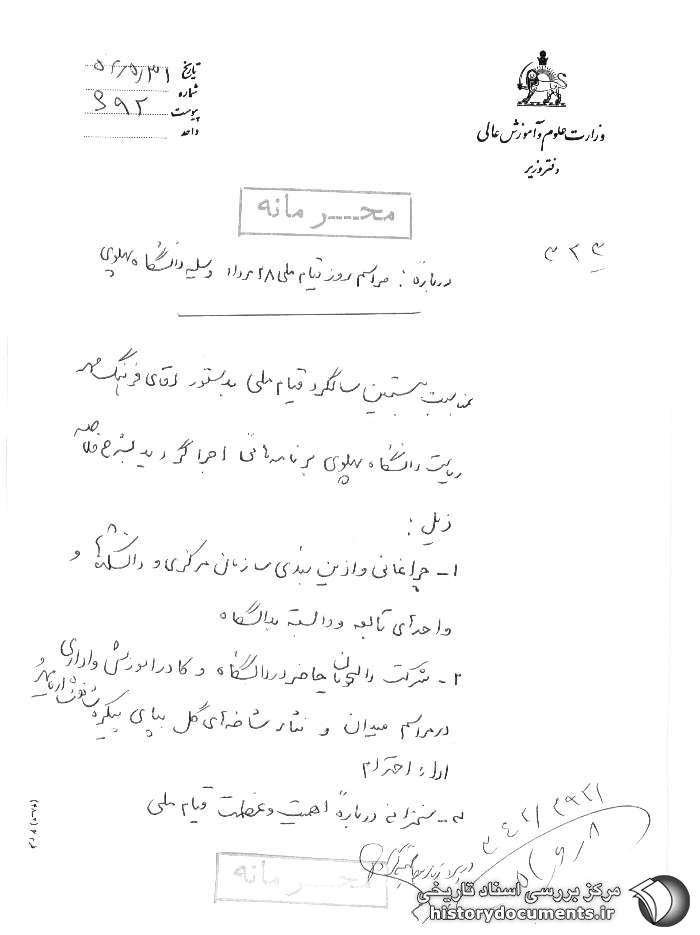 تاریخ ۵۲/۵/۳۱
شماره
پیوست ۶۹۲
واحد
وزارت علوم و آموزش عالی
دفتر وزیر
محـرمانه
درباره: مراسم روز قیام ملی ۲۸ مرداد وسیله دانشگاه پهلوی
بمناسبت بیستمین سالگرد قیام ملی بدستور آقای فرهنگ مهر
ریاست دانشگاه پهلوی برنامه‌هائی اجرا گردید بشرح خلاصه
ذیل:
۱- چراغانی و آذین بندی سازمان مرکزی و دانشکده‌ها و
واحدهای تابعه و وابسته بدانشگاه
۲- شرکت دانشجویان حاضر در دانشگاه و کادر آموزشی و اداری
در مراسم میدان و نثار شاخه‌های گل بپای پیکره شاهنشاه آریامهر و
ادای احترام
۳- سخنرانی درباره اهمیت و عظمت قیام ملی
محـرمانه
مرکز بررسی اسناد تاریخی
historydocuments.ir